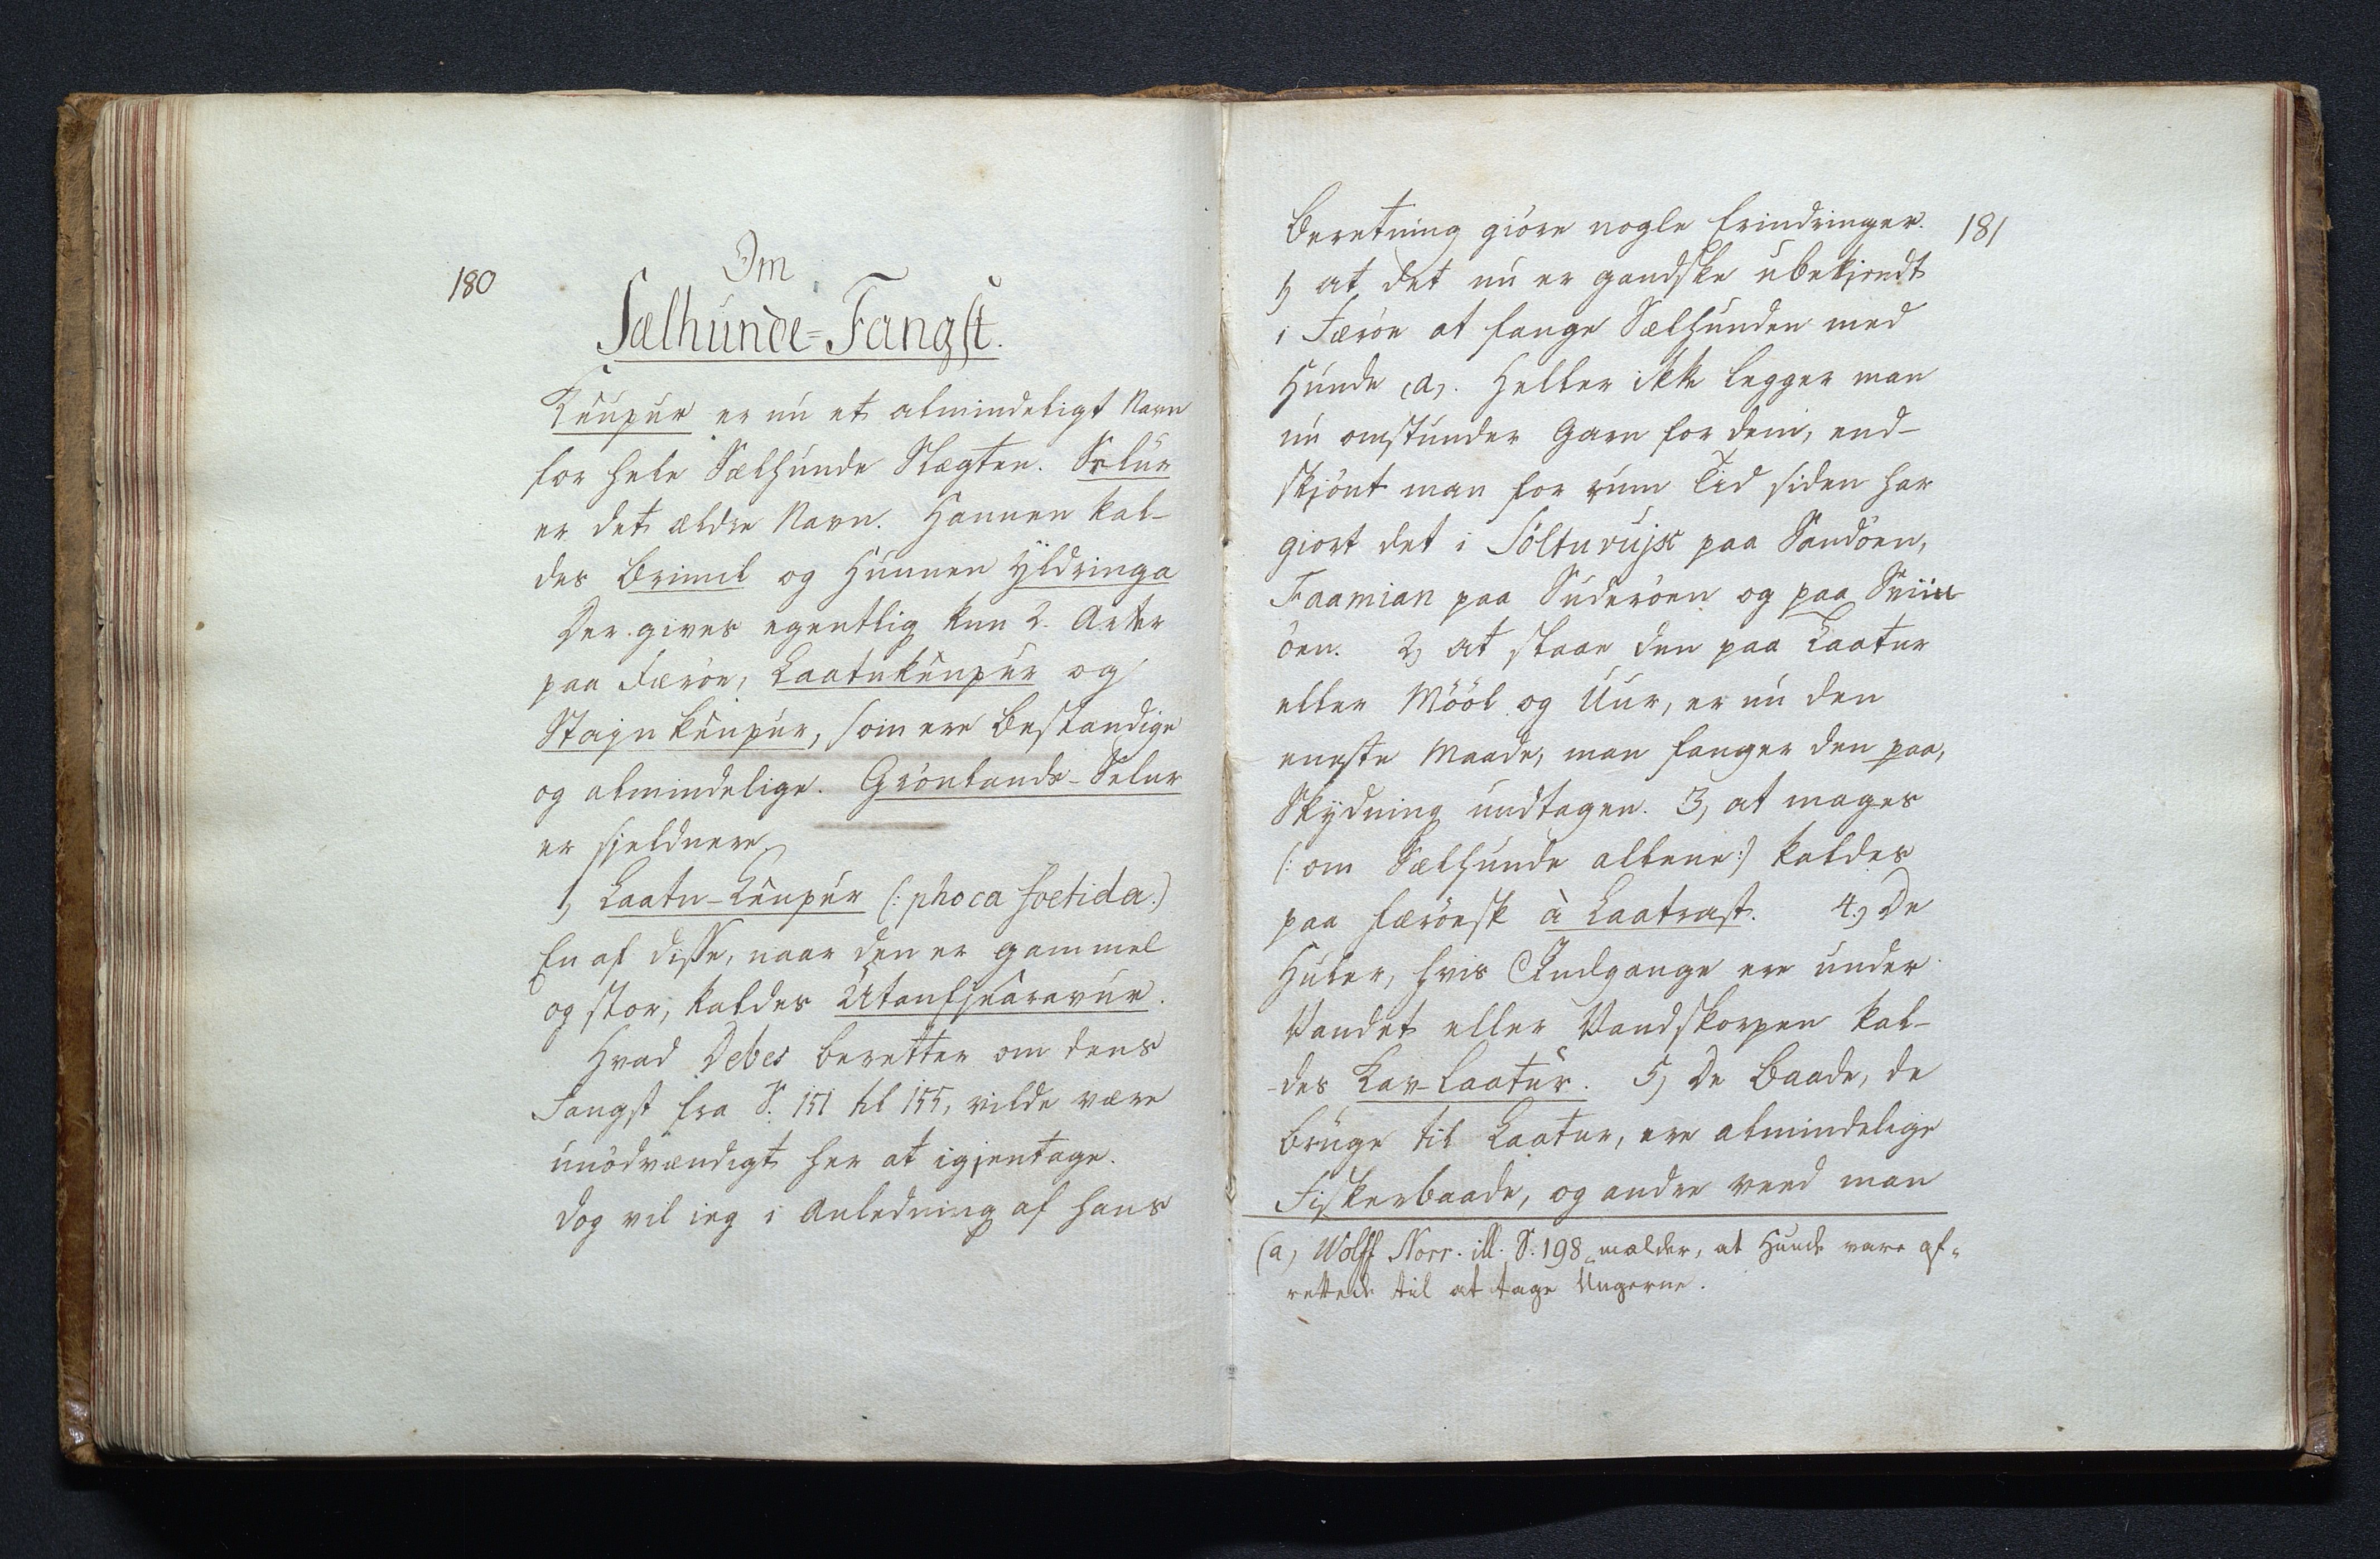 180
Om
Sælhunde-Fangst.
Kũupur er nu et almindeligt Navn
for hele Sælhunde Slægten. Selur
er det ældre Navn. Hannen kal-
des Brimil og Hunnen Yldringa
Der gives egentlig kun 2. Arter
paa Færøe, Laatukũupur og
Stajnkũupur, som ere bestandige
og almindelige. Grönlands-Selur
er sjeldnere.
1, Laatu-Kũupur (: phoca foetida.)
En af disse, naar den er gammel
og stor, kaldes Utanfjearavur.
Hvad Debes beretter om dens
Fangst fra S. 151 til 155, vilde være
unödvændigt her at igjentage.
Dog vil ieg i Anledning af hans
181
Beretning giöre nogle Erindringer.
1, at det nu er gandske ubekjendt
i Færöe at fange Sælhunden med
Hunde (a). Heller ikke legger man
nu omstunder Garn for dem, end-
skjönt man for rum Tid siden har
giort det i Sölturujk paa Sandöen,
Faamian paa Suderöen og paa Sviin
öen. 2, at slaae den paa Laatur
eller Möøl og Uur, er nu den
eneste Maade, man fanger den paa,
Skydning undtagen. 3, at mages
(: om Sælhunde allene:) kaldes
paa færöesk à Laatrast. 4.) De
Huler, hvis Indgange ere under
Vandet eller Vandskorpen kal-
des Kav-Laatur. 5, De Baade, de
bruge til Laatur, ere almindelige
Fiskerbaade, og andre veed man
(a) Wolff Norr. ill. S. 198 mælder, at Hunde vare af-
rettede til at tage Ungerne.